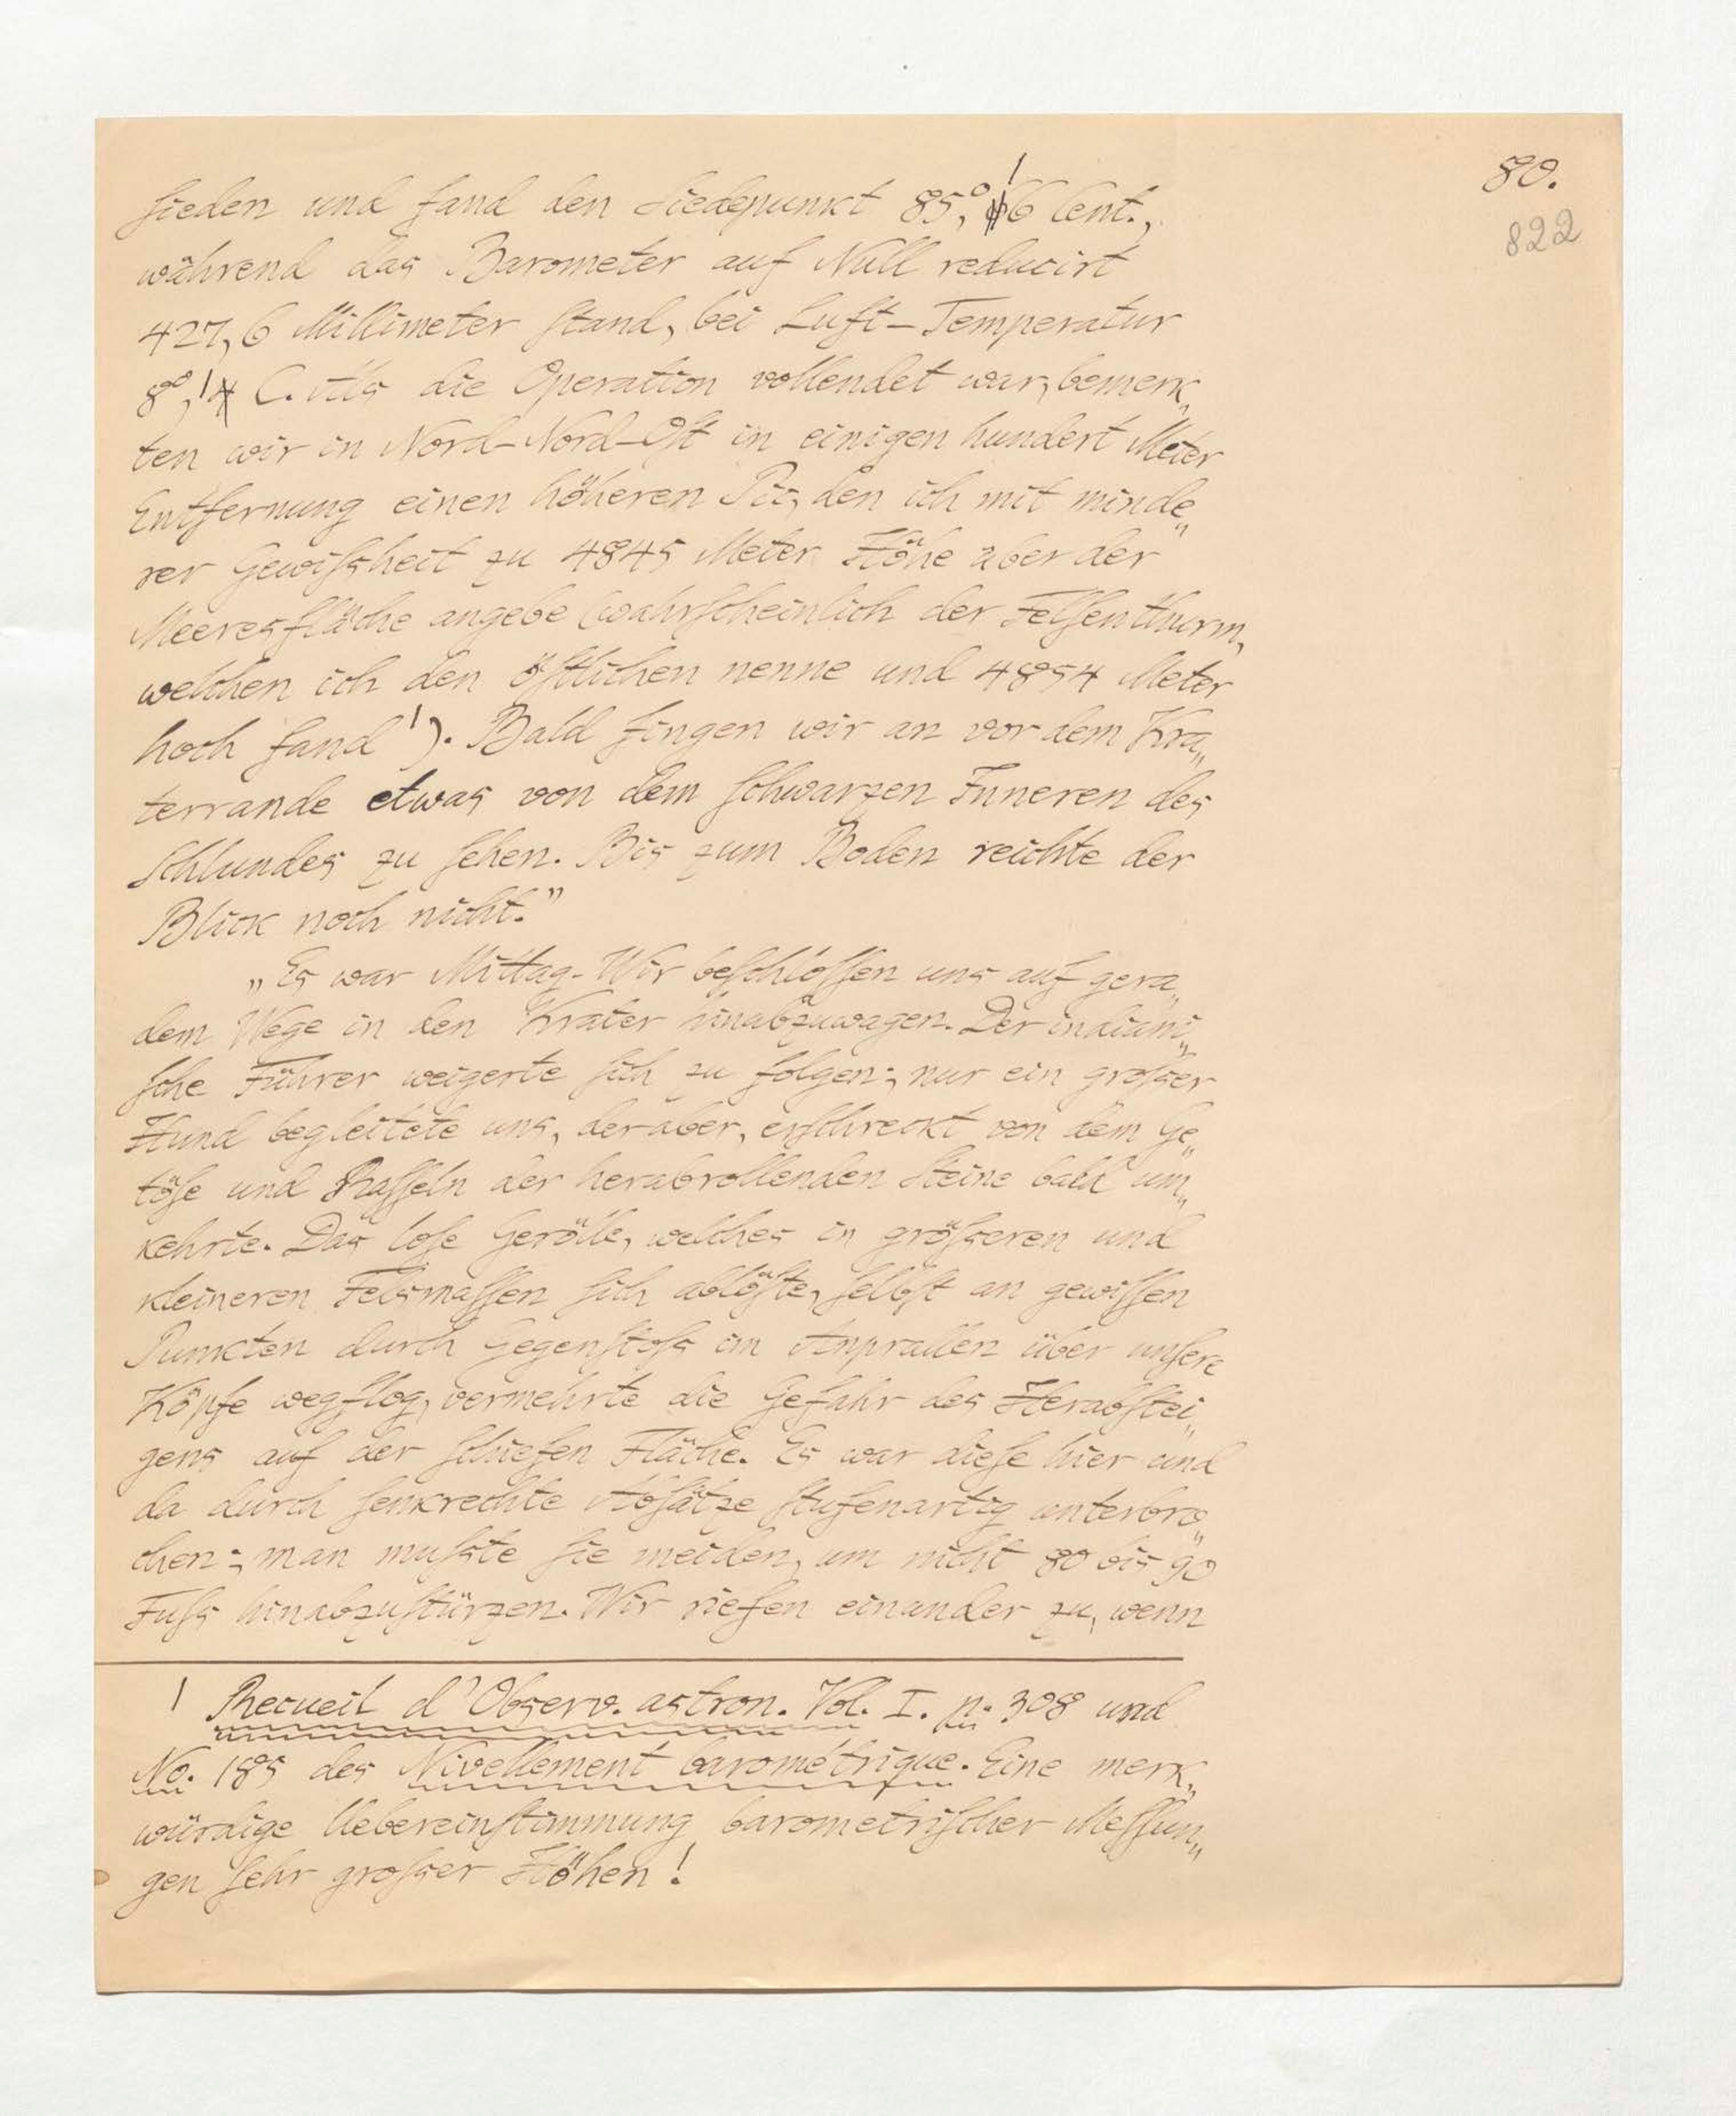 80.
822
sieden und fand den Siedepunkt 85,°16 Cent.,
während das Barometer auf Null reducirt
427,6 Millimeter stand, bei Luft-Temperatur
8°,1 C. Als die Operation vollendet war, bemerk„
ten wir in Nord-Nord-Ost in einigen hundert Meter
Entfernung einen höheren Pic, den ich mit minde„
rer Gewissheit zu 4845 Meter Höhe über der
Meeresfläche angebe (wahrscheinlich der Felsenthurm,
welchen ich den östlichen nenne und 4854 Meter
hoch fand ¹). Bald fingen wir an vor dem Kra„
terrande etwas von dem schwarzen Inneren des
Schlundes zu sehen. Bis zum Boden reichte der
Blick noch nicht."
„Es war Mittag. Wir beschlossen uns auf gera„
dem Wege in den Krater hinabzuwagen. Der indiani„
sche Führer weigerte sich zu folgen; nur ein grosser
Hund begleitete uns, der aber, erschreckt von dem Ge„
töse und Rasseln der herabrollenden Steine bald um„
kehrte. Das lose Gerölle, welches in grösseren und
kleineren Felsmassen sich ablöste, selbst an gewissen
Punkten durch Gegenstoss im Anprallen über unsere
Köpfe wegflog, vermehrte die Gefahr des Herabstei„
gens auf der schiefen Fläche. Es war diese hier und
da durch senkrechte Absätze stufenartig unterbro„
chen; man musste sie meiden, um nicht 80 bis 90
Fuss hinabzustürzen. Wir riefen einander zu, wenn
1 Recueil d'Observ. astron. Vol. I. p. 308 und
No. 185 des Nivellement barométrique. Eine merk„
würdige Uebereinstimmung barometrischer Messun„
gen sehr grosser Höhen!